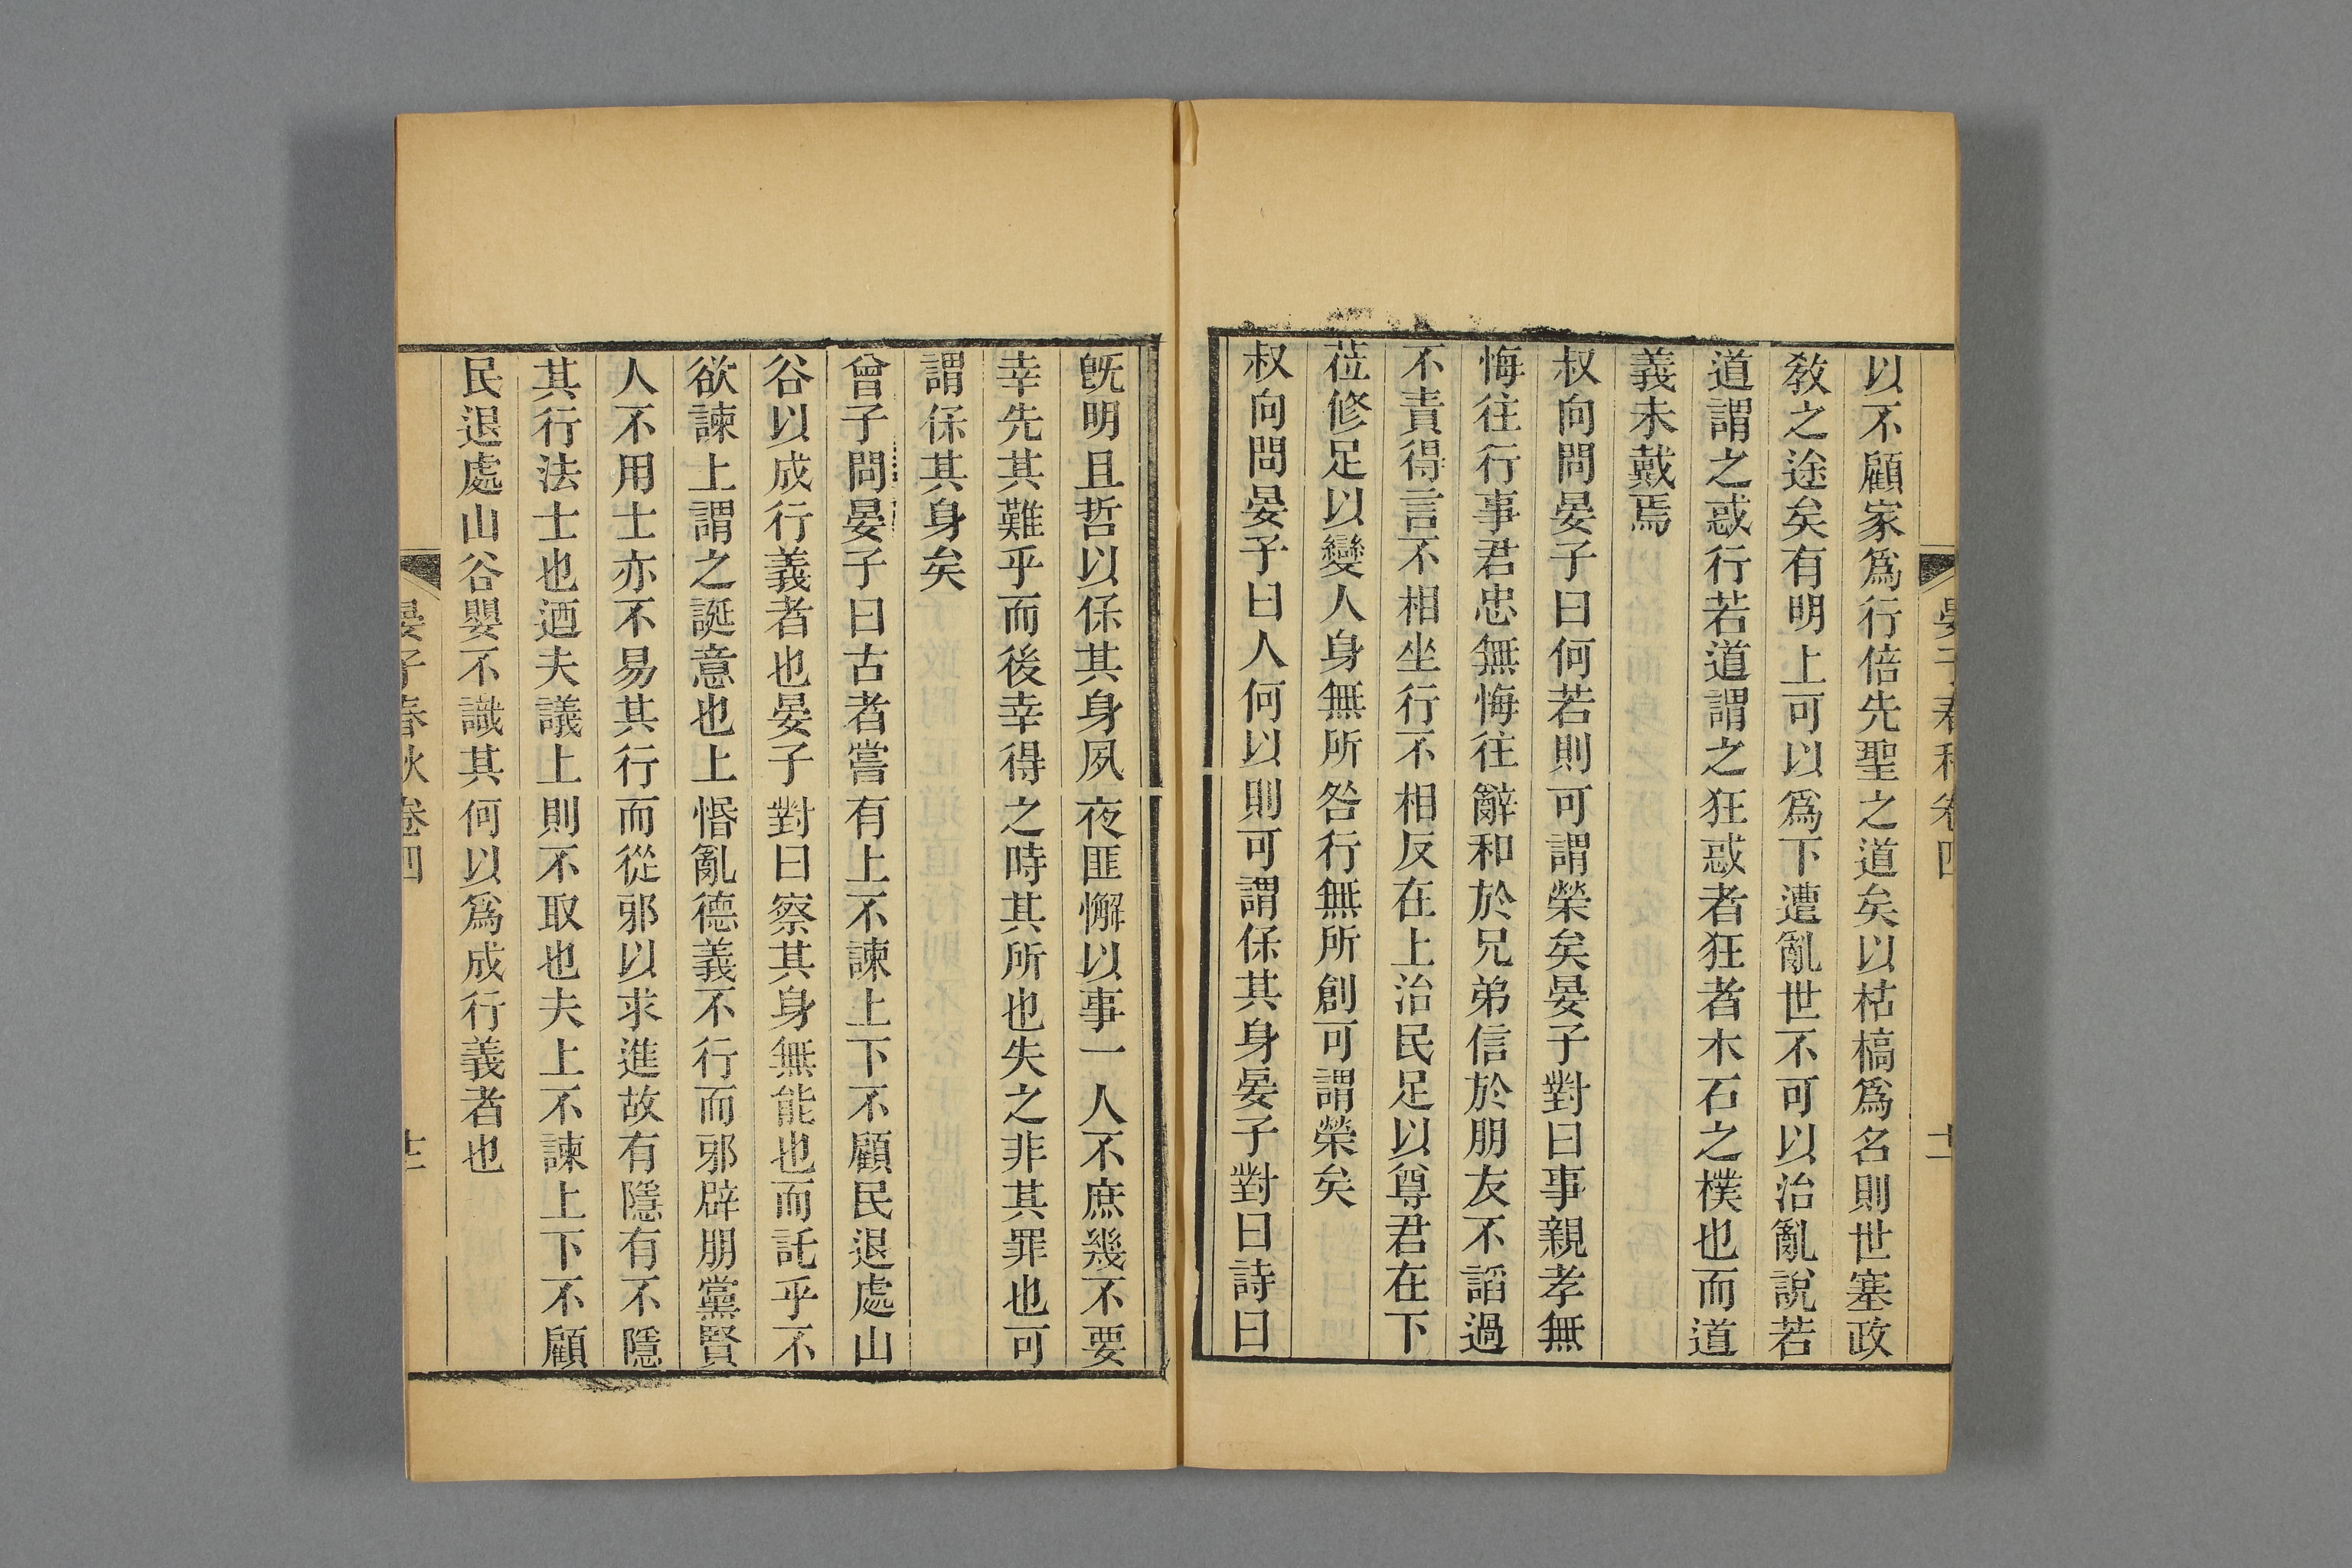 以不顧家爲行倍先聖之道矣以枯槁爲名則世塞政
敎之途矣有明上可以爲下遭亂世不可以治亂說若
道謂之惑行若道謂之狂惑者狂者木石之樸也而道
義未戴焉
叔向問晏子曰何若則可謂榮矣晏子對曰事親孝無
悔往行事君忠無悔往辭和於兄弟信於朋友不謟過
不責得言不相坐行不相反在上治民足以尊君在下
莅修足以變人身無所咎行無所創可謂榮矣
叔向問晏子曰人何以則可謂保其身晏子對曰詩曰
旣明且哲以保其身夙夜匪懈以事一人不庶幾不要
幸先其難乎而後幸得之時其所也失之非其罪也可
謂保其身矣
曾子問晏子曰古者嘗有上不諫上下不顧民退處山
谷以成行義者也晏子對曰察其身無能也而託乎不
欲諫上謂之誕意也上惽亂德義不行而邪辟朋黨賢
人不用士亦不易其行而從邪以求進故有隱有不隱
其行法士也迺夫議上則不取也夫上不諫上下不顧
民退處山谷嬰不識其何以爲成行義者也
晏子春秋卷四